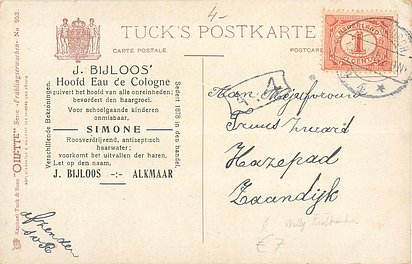 4-
TUCK'S POSTKARTE
CARTE POSTALE
POST CARD
J. BIJLOOS'
Hoofd Eau de Cologne
zuivert het hoofd van alle onreinheden,
bevordert den haargroei.
Voor schoolgaande kinderen
onmisbaar,
SIMONE
Roosverdrijvend, antiseptisch
haarwater;
voorkomt het uitvallen der haren.
Let op den naam,
J. BIJLOOS -:- ALKMAAR
Verschillende Bekroningen.
Sedert 1878 in den handel.
RAPHAEL TUCK & SONS' "OILETTE" Serie Frühlingserwachen No 953.
NEDERLAND
1
CENT
Aan Mejufvrouw
Truus
Hazepad
Zaandijk
afzender
€7